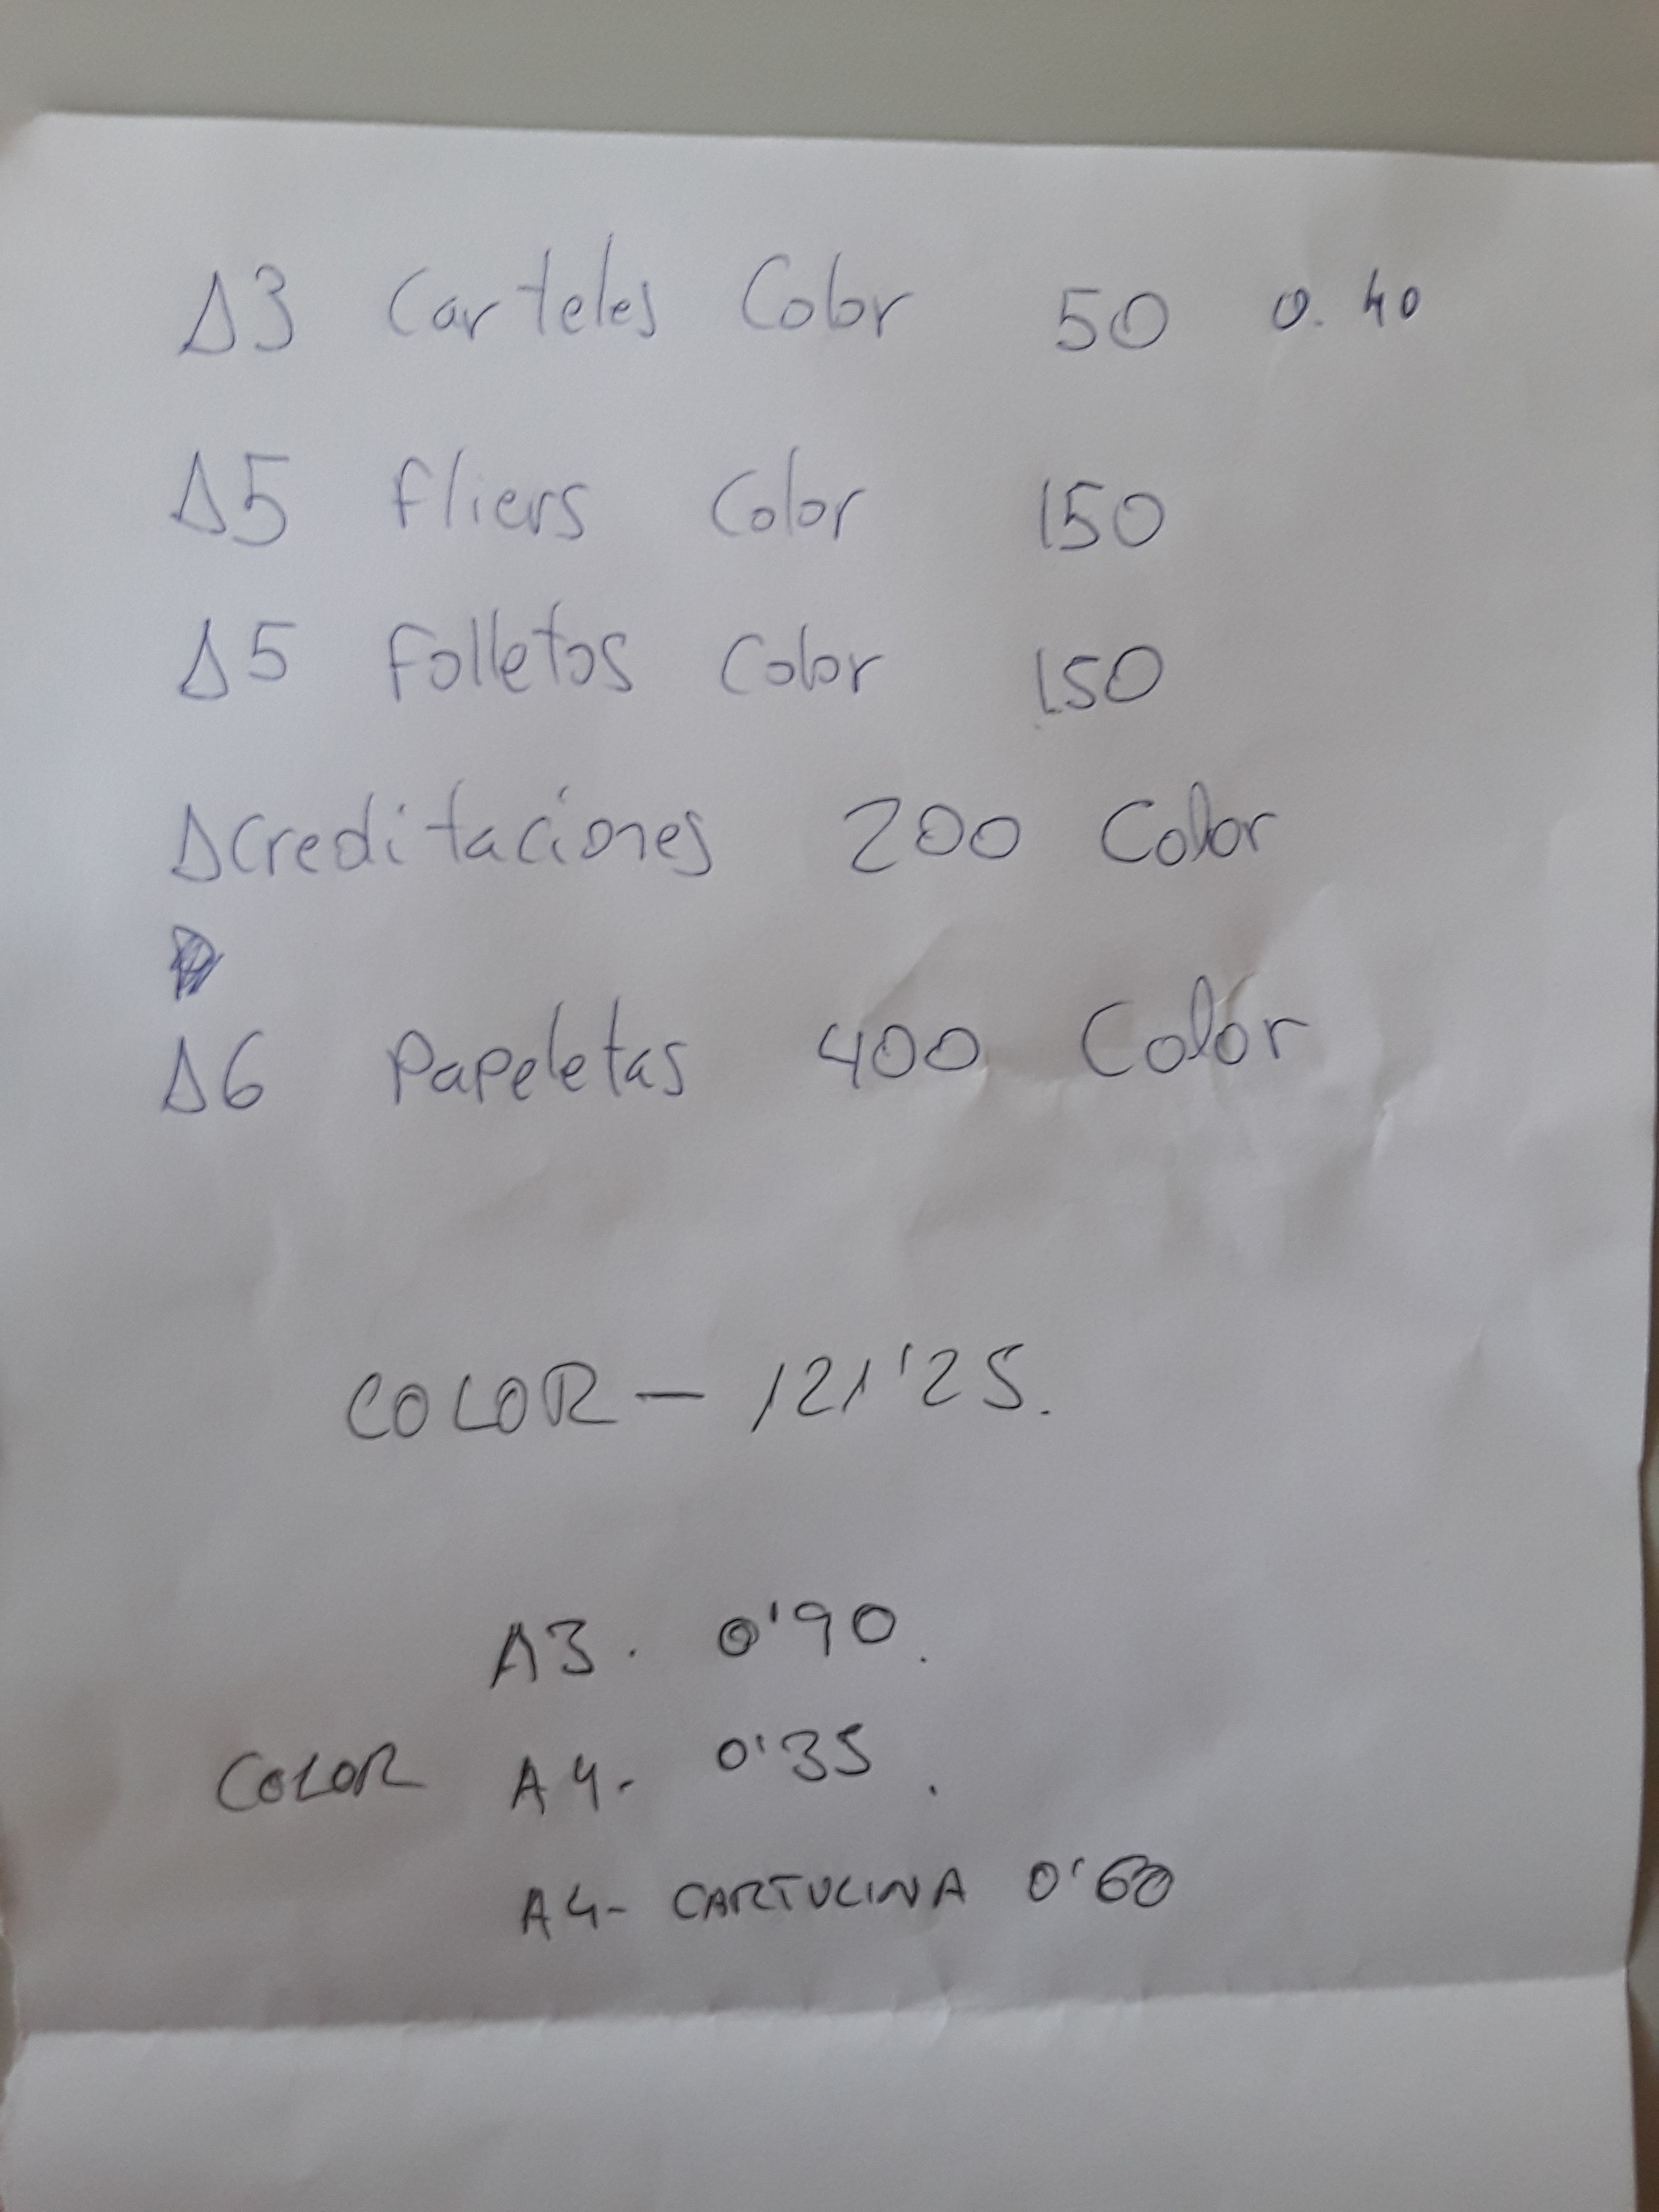 A3 Carteles Color 50 0.40
A5 Fliers Color 150
A5 Folletos Color 150
Acreditaciones 200 Color
A6 Papeletas 400 Color
COLOR - 121'25.
A3. 0'90.
COLOR A4- 0'35.
A4- CARTULINA 0'60